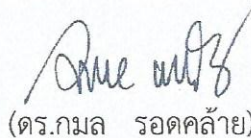 (ดร.กมล รอดคล้าย)